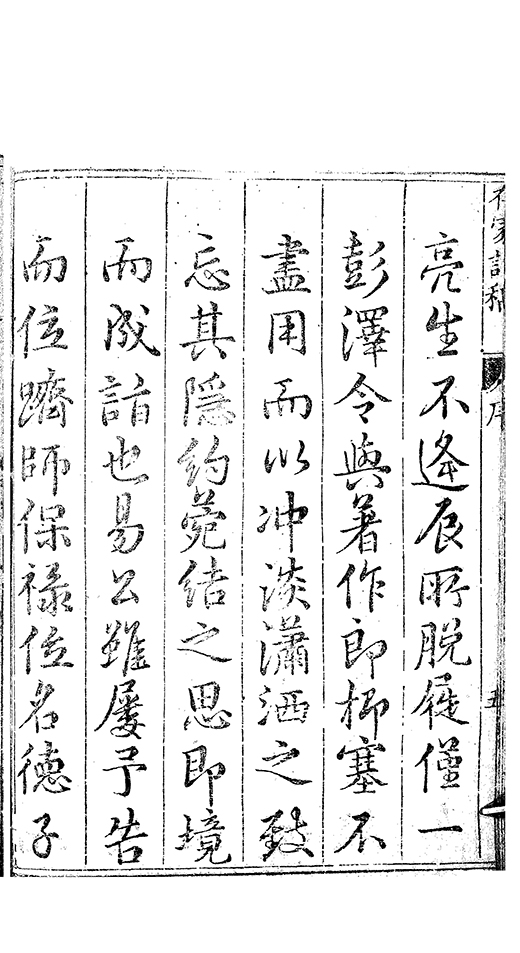 亮生不逢辰所脫屣僅一
彭澤令與著作郎抑塞不
盡用而以冲淡瀟洒之致
忘其隱約菀結之思即境
而成詣也易公雖屢予告
而位躋師保祿位名德子
序
五